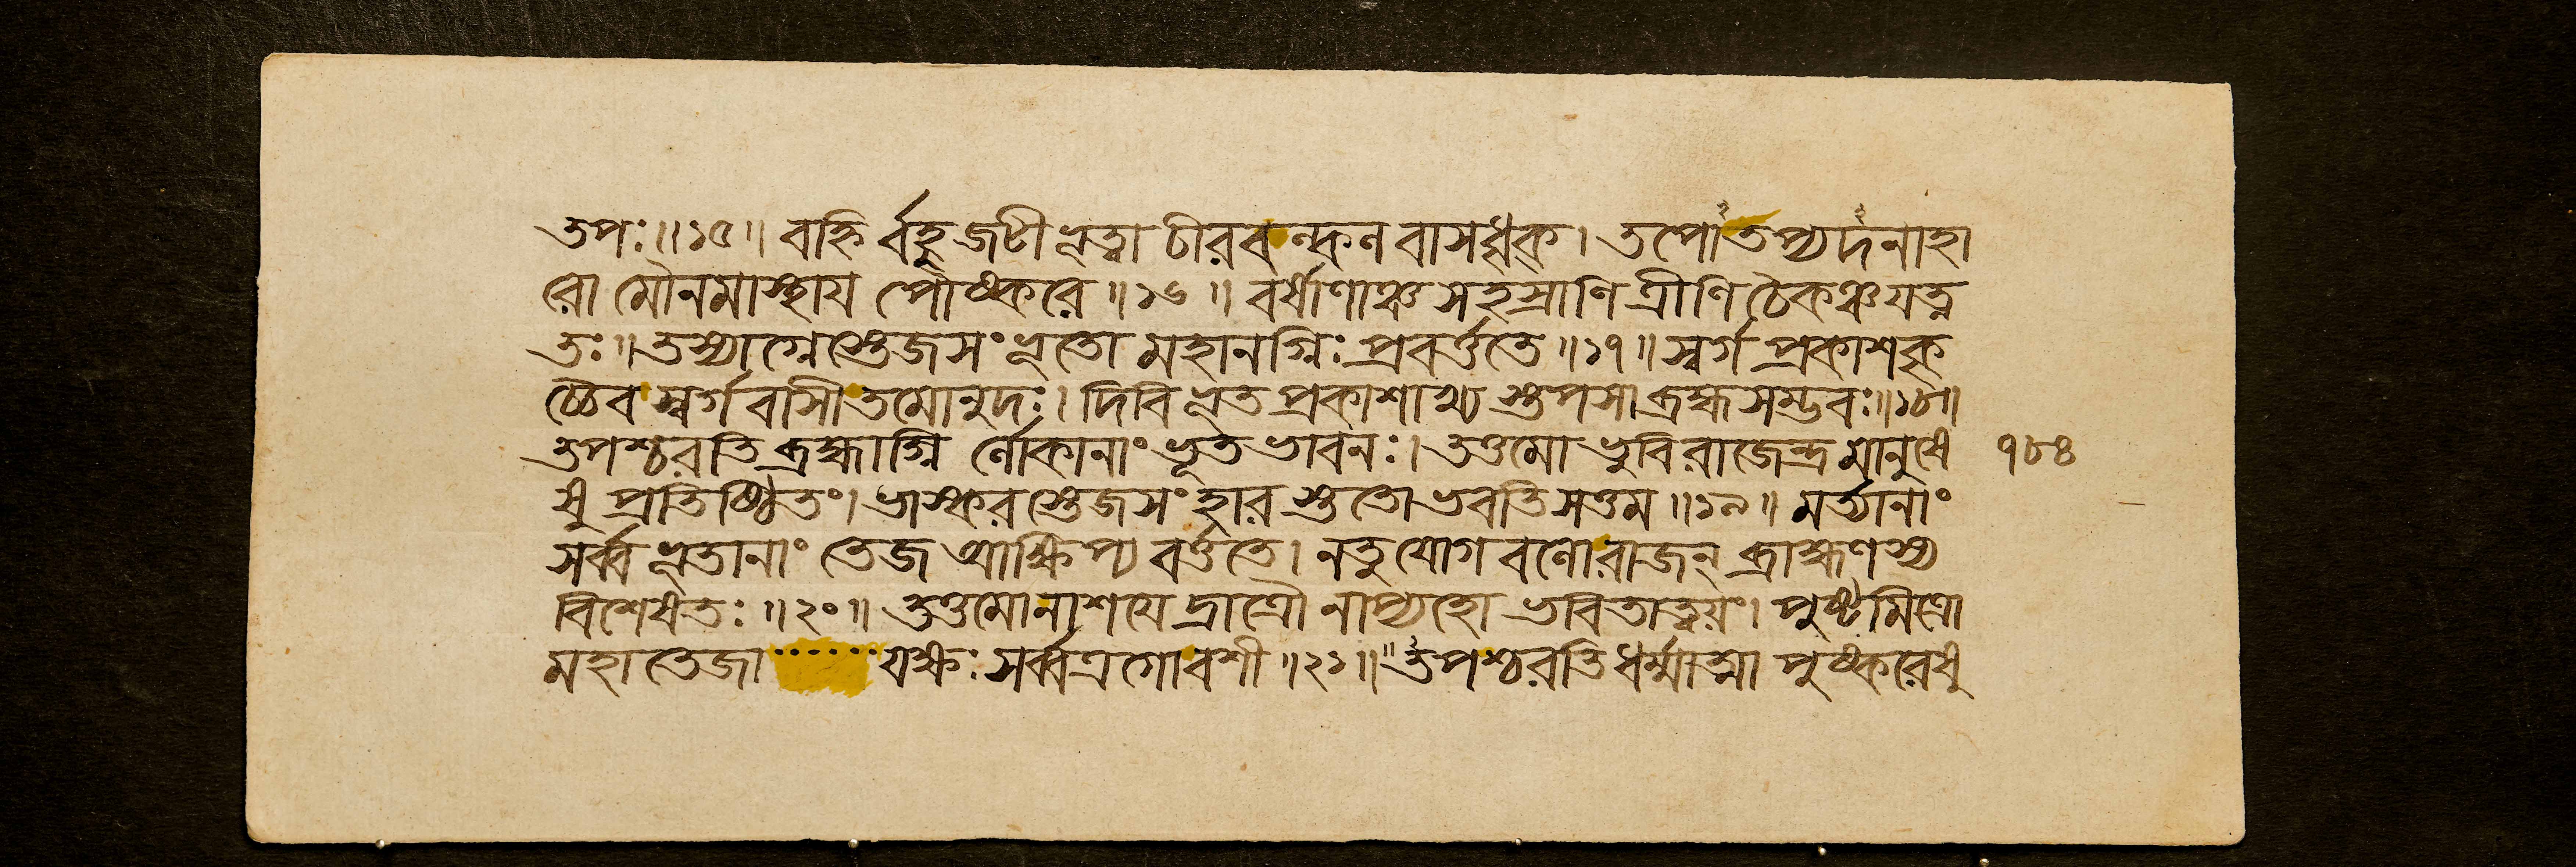 তপঃ॥১৫॥ বহ্নি র্বহু জটী ভূত্বা চীরবল্কলবাসধৃক। তপোতপ্যদনাহা
রো মৌনমাস্থায় পৌষ্করে॥১৬॥ বর্ষাণাঞ্চ সহস্রাণি ত্রীণি চৈকঞ্চ যত্ন
তঃ॥ তস্যাগ্নেস্তেজসংভূতো মহানগ্নিঃ প্রবর্ত্ততে॥১৭॥ স্বর্গ প্রকাশকৃ
চ্চৈব স্বর্গবাসী তমোনুদঃ। দিবি ভূত প্রকাশাখ্য স্তপসা ব্রহ্মসম্ভবঃ॥১৮॥
তপশ্চরতি ব্রহ্মাগ্নি র্লোকানাং ভূত ভাবনঃ। তত্তমো ভুবি রাজেন্দ্র মানুষে ১৮৪
ষু প্রতিষ্ঠিতং। ভাস্কর স্তেজসংহার স্ততো ভবতি সত্তম॥১৯॥ মর্ত্যানাং
সর্ব্ব ভূতানাং তেজ আক্ষিপ্য বর্ত্ততে। নতু যোগ বলো রাজন্ ব্রাহ্মণস্য
বিশেষতঃ॥২০॥ তত্তমো নাশয়ে দ্রাত্রৌ নাপ্যহো ভবিতাত্বয়ং। পুষ্টমিত্রো
মহা তেজা ······ যক্ষঃ সর্ব্বত্রগো বশী॥২১॥ তপশ্চরতি ধর্ম্মাত্মা পুষ্করেষু